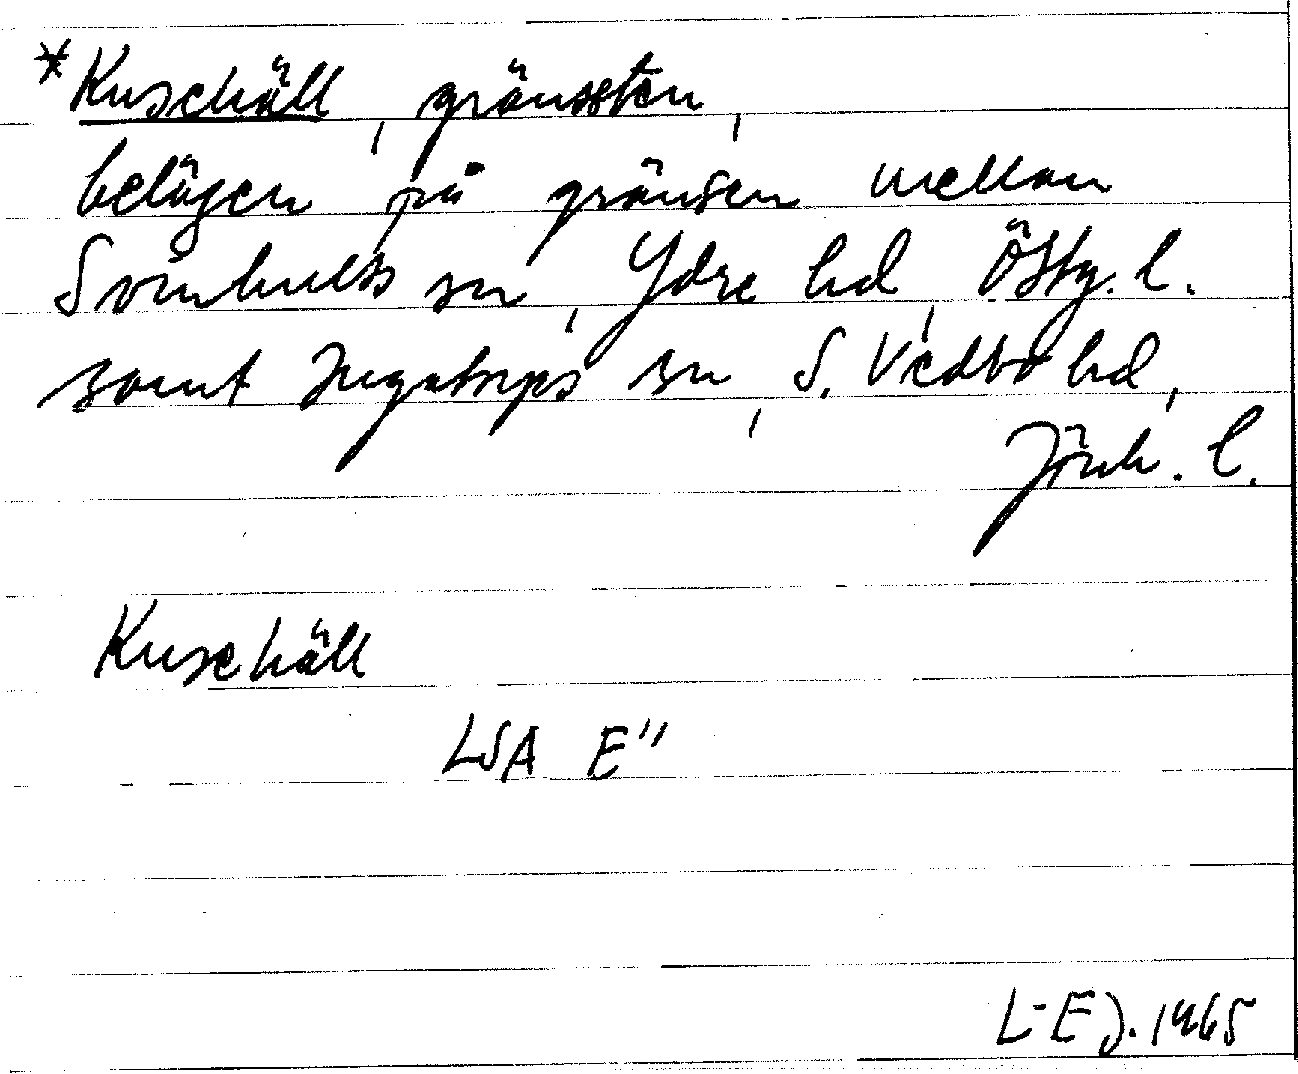 *Kuschäll, gränssten,
belägen på gränsen mellan
Svinhults sn, Ydre hd, Östg. l.
samt Ingatorps sn, S. Vedbo hd,
Jönk. l.
Kuschäll
LSA E"
L-E J. 1965